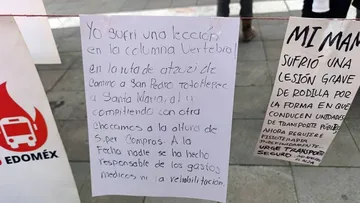 EDOMÉX
Yo sufrí una lección
en la columna vertebral
en la ruta de
camino a San Pedro
a Santa María, al ir
compitiendo con otra
chocamos a la altura de
Super Compras. A la
Fecha nadie se ha hecho
responsable de los gastos
medicos ni la rehabilitación
MI MAM
SUFRIÓ UNA
LESIÓN GRAVE
DE RODILLA POR
LA FORMA EN QUE
CONDUCEN UNIDADES
DE TRANSPORTE PÚBLICO
AHORA REQUIERE
FISIOTERAPIA
URGE TRANSPORTE
SEGURO